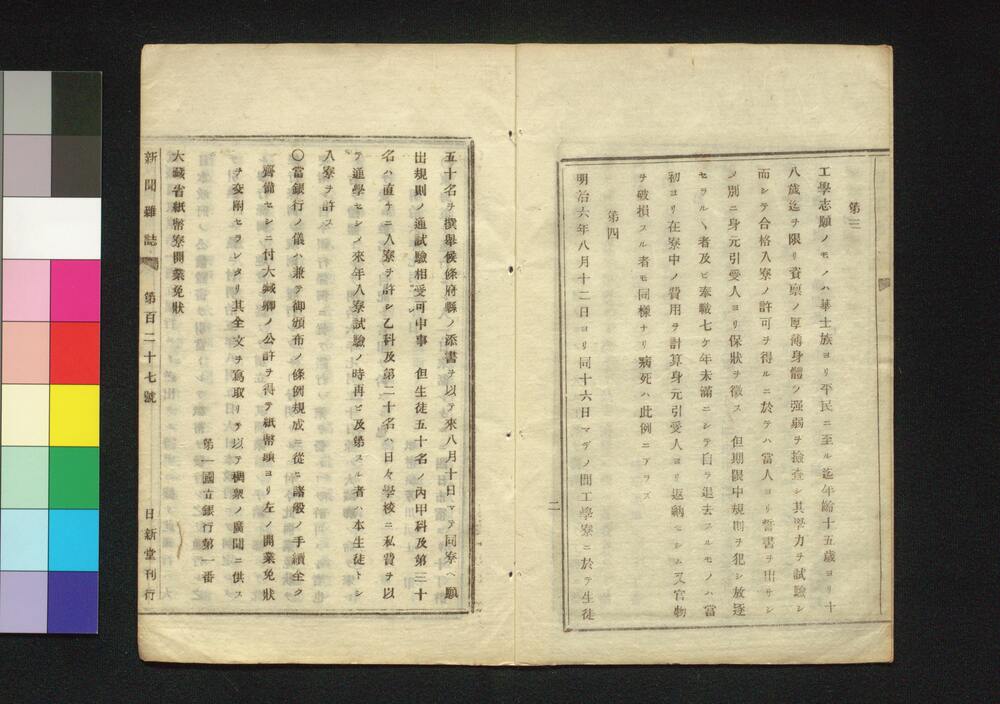 第三
工學志願ノモノハ華士族ヨリ平民ニ至ル迄年齡十五歳ヨリ十
八歳迄ヲ限リ資禀ノ厚薄身體ノ强弱ヲ撿査シ其學力ヲ試驗シ
而シテ合格入寮ノ許可ヲ得ルニ於テハ當人ヨリ誓書ヲ出サシ
メ別ニ身元引受人ヨリ保狀ヲ徴ス 但期限中規則ヲ犯シ放逐
セラルヽ者及ヒ奉職七ケ年未滿ニシテ自ラ退去スルモノハ當
初ヨリ在寮中ノ費用ヲ計算身元引受人ヨリ返納セシム又官物
ヲ破損スル者モ同樣ナリ病死ハ此例ニアラズ
第四
明治六年八月十二日ヨリ同十六日マデノ間工學寮ニ於テ生徒
二
五十名ヲ撰擧候條府縣ノ添書ヲ以テ來八月十日マテ同寮ヘ願
出規則ノ通試驗相受可申事 但生徒五十名ノ內甲科及第三十
名ハ直チニ入寮ヲ許シ乙科及第二十名ハ日々學校ニ私費ヲ以
テ通學セシメ來年入寮試驗ノ時再ヒ及第スル者ハ本生徒トシ
入寮ヲ許ス
〇當銀行ノ儀ハ兼テ御頒布ノ條例規成ニ從ヒ諸般ノ手續全ク
齊備セシニ付大藏卿ノ公許ヲ得テ紙幣頭ヨリ左ノ開業免狀
ヲ交附セラレタリ其全文ヲ寫取リテ以テ稠衆ノ廣聞ニ供ス
第一國立銀行第一番
大藏省紙幣寮開業免狀
新聞雜誌 第百二十七號 日新堂刊行